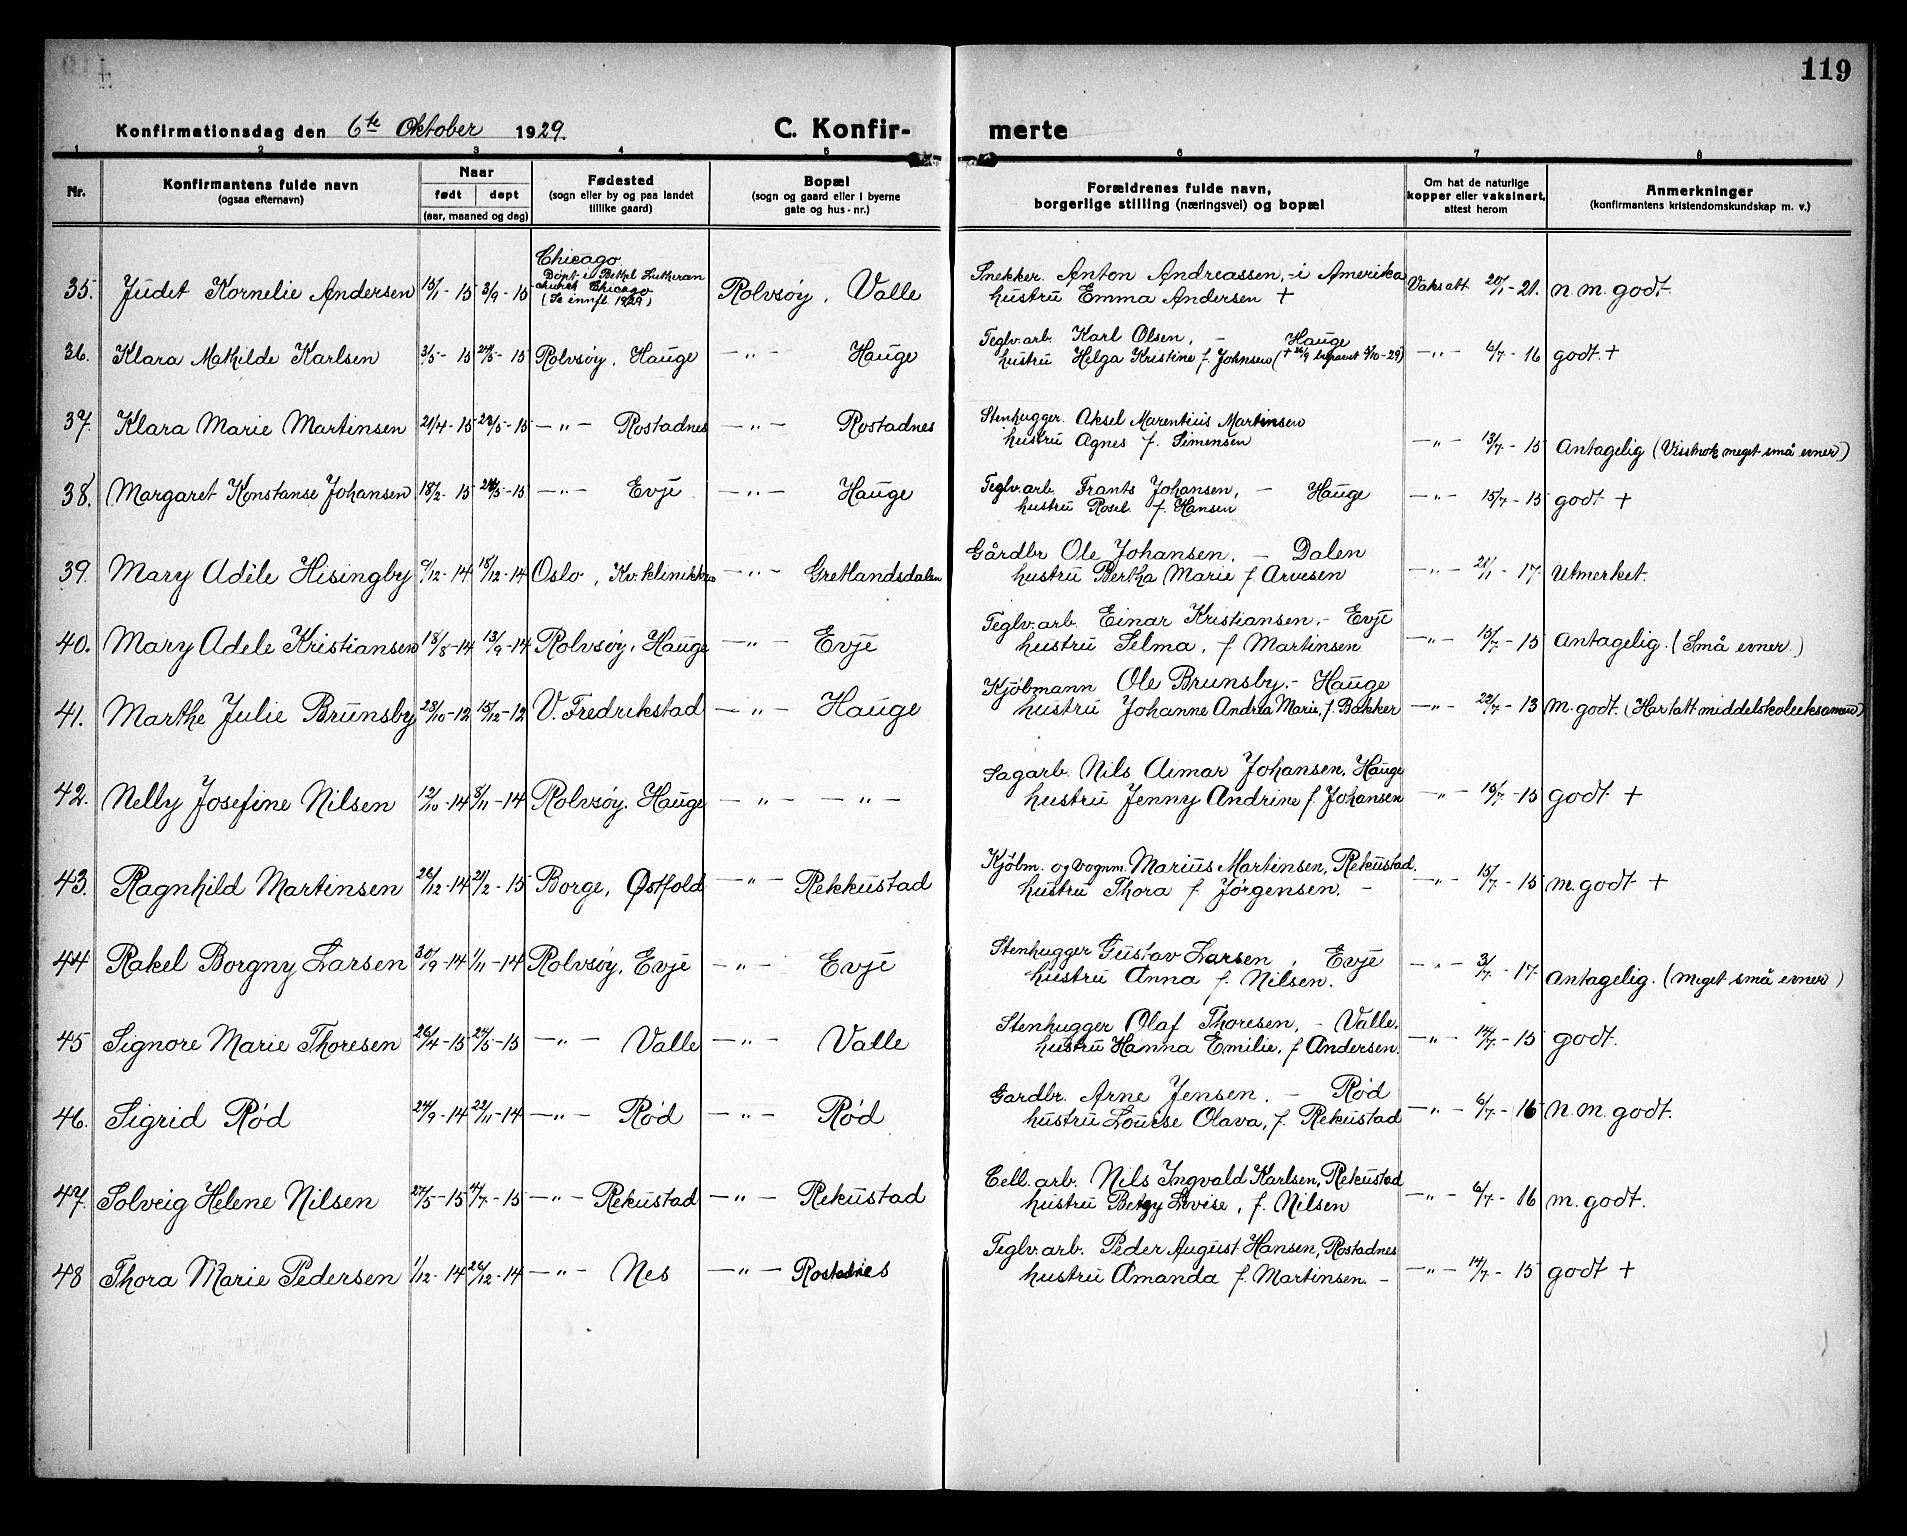 119
Konfirmationsdag den 6te Oktober 1929. C. Konfir- merte
1 2 3 4 5 6 7 8
Nr. Konfirmantens fulde navn (ogsaa efternavn) Naar født døpt (aar, maaned og dag) Fødested (sogn eller by og paa landet tillike gaard) Bopæl (sogn og gaard eller i byerne gate og hus-nr.) Forældrenes fulde navn, borgerlige stilling (næringsvei) og bopæl Om hat de naturlige kopper eller vaksinert, attest herom Anmerkninger (konfirmantens kristendomskundskap m. v.)
35. Judit Kornelie Andersen 15/1-15 3/9-15 Chicago. Døpt i Bethel Lutheran church Chicago (Se innfl. 1929) Rolvsøy, Valle Snekker. Anton Andreassen, - i Amerika Vaks att 20/1-21. n. m. godt.
hustru Emma Andersen +
36. Klara Mathilde Karlsen 3/3-15 24/5-15 Rolvsøy, Hauge -"- Hauge Teglv. arb. Karl Olsen, - Hauge -"- 6/7-16 godt. +
hustru Helga Kristine f. Johnsen (+ 26/9 begravet 5/10-29)
37. Klara Marie Martinsen 21/4-15 23/5-15 -"- Rostadnes -"- Rostadnes Stenhugger. Aksel Marentius Martinsen -"- 13/7-15 Antagelig (Visstnok meget små evner)
hustru Agnes f. Simensen
38. Margaret Konstanse Johansen 18/2-15 24/5-15 -"- Evje -"- Hauge Teglv. arb. Frants Johansen, - Hauge -"- 15/7-15 godt +
hustru Rosel. f. Hansen
39. Mary Adèle Hisingby 9/12-14 18/12-14 Oslo, Kv. klinikken -"- Gretlandsdalen Gårdbr Ole Johansen, - Dalen -"- 21/1-17. Utmerket.
hustru Bertha Marie f. Arvesen
40. Mary Adele Kristiansen 18/8-14 13/9-14 Rolvsøy, Hauge -"- Evje Teglv. arb. Einar Kristiansen, - Evje -"- 15/7-15 Antagelig. (Små evner.)
hustru Selma, f Martinsen
41. Marthe Julie Brunsby 23/10-12 15/12-12 V. Fredrikstad -"- Hauge Kjøbmann Ole Brunsby. - Hauge -"- 22/7-13 M. godt. (Har tatt middelskoleeksamen)
hustru Johanne Andrea Marie, f. Bakker
42. Nelly Josefine Nilsen 12/10-14 8/11-14 Rolvsøy. Hauge -"- -"- Sagarb. Nils Aimar Johansen, Hauge -"- 15/7-15 godt +
hustru Jenny Andrine f. Johansen
43. Ragnhild Martinsen 26/12-14 21/2-15 Borge, Østfold -"- Rekkustad Kjøbm. og vognm. Marius Martinsen, Rekustad. -"- 15/7-15 m. godt +
hustru Thora f. Jørgensen. -
44 Rakel Borgny Larsen 30/9-14 1/11-14 Rolvsøy, Evje -"- Evje Stenhugger Gustav Larsen, Evje -"- 3/7-17. Antagelig. (Meget små evner)
hustru Anna f. Nilsen.
45 Signore Marie Thoresen 26/4-15 24/5-15 -"- Valle -"- Valle Stenhugger Olaf Thoresen, - Valle. -"- 14/7-15 godt.
hustru Hanna Emilie, f Andersen.
46. Sigrid Rød 24/9-14 22/11-14 -"- Rød -"- Rød Gardbr. Arne Jensen. - Rød -"- 6/7-16 n. m. godt.
hustru Louise Olava, f. Rekustad
47. Solveig Helene Nilsen 27/5-15 4/7-15 -"- Rekustad -"- Rekustad Cell. arb. Nils Ingvald Karlsen, Rekustad -"- 6/7-16 m. godt.
hustru Betzy Lovise, f. Nilsen
48 Thora Marie Pedersen 1/12-14 26/12-14 -"- Nes -"- Rostadnes Teglv. arb. Peder August Hansen, Rostadnes -"- 14/7-15 godt +
hustru Amanda f. Martinsen. -